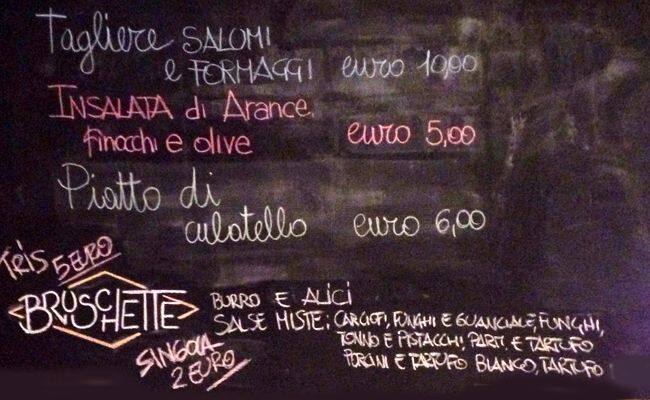 Tagliere SALOMI
e FORMAGGI euro 10,00
INSALATA di Arance,
finocchi e olive euro 5,00
Piatto di
culatello euro 6,00
TRIS 5 EURO
BRUSCHETTE
SINGOLA
2 EURO
BURRO E ALICI
SALSE MISTE: CARCIOFI, FUNGHI E GUANCIALE, FUNGHI,
TONNO E PISTACCHI, PARM. E TARTUFO
PORCINI E TARTUFO BIANCO, TARTUFO